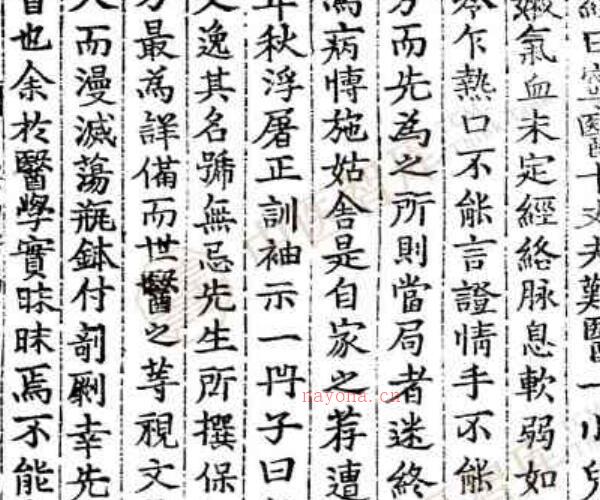 曰寧醫十丈夫難醫一小兒
嫩氣血未定經絡脉息軟弱如
乍熱口不能言證情手不能
而先為之所則當局者迷終
為病慱施姑舍是自家之荐遭
年秋浮屠正訓袖示一冊子曰
逸其名號無忌先生所撰保
最為詳備而世醫之等視文
而漫滅蕩瓶鉢付剞劂幸先
也余於醫學實昧昧焉不能
rayona.cn